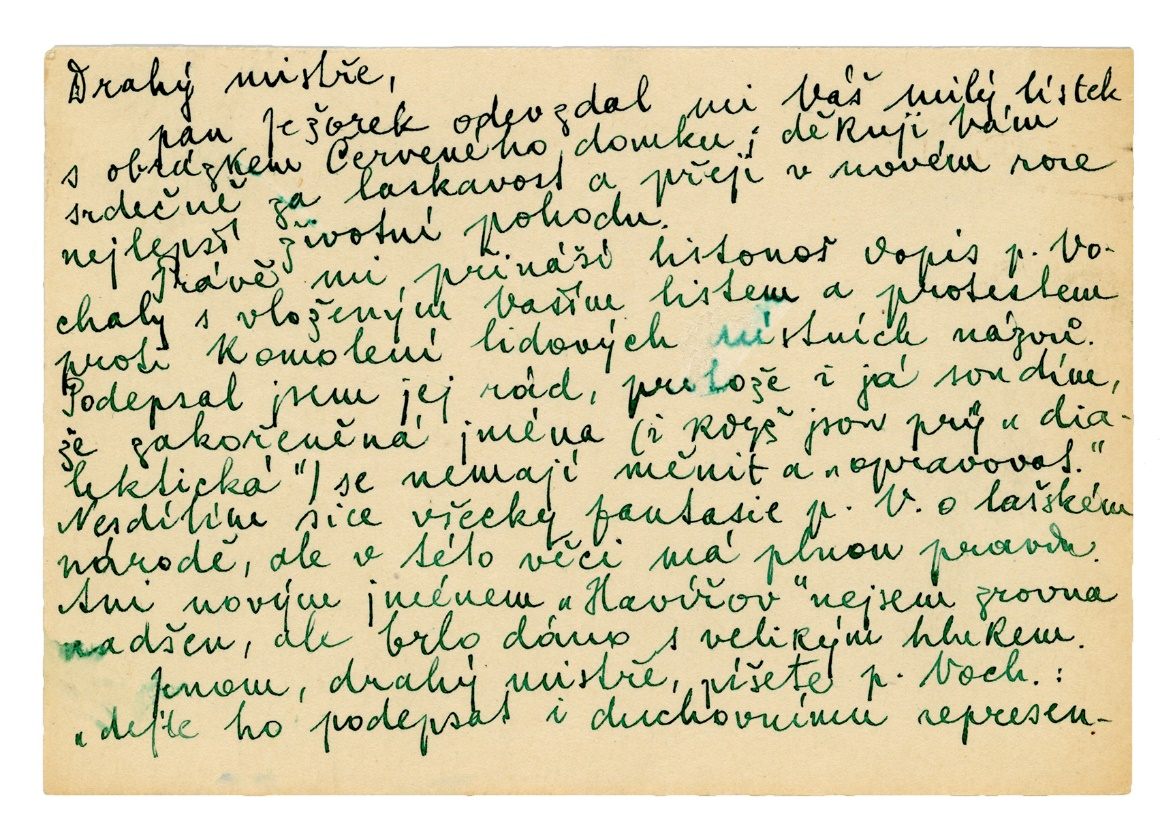 Drahý mistře,
pan Ježorek odevzdal mi Váš milý lístek
s obrázkem Červeného domku; děkuji Vám
srdečně za laskavost a přeji v novém roce
nejlepší životní pohodu.
Právě mi přináší listonoš dopis p. Vo-
chaly s vloženým Vaším listem a protestem
proti komolení lidových místních názvů.
Podepsal jsem jej rád, protože i já soudím,
že zakořeněná jména (i když jsou prý „dia-
lektická") se nemají měnit a „opravovat."
Nesdílím sice všecky fantasie p. V. o lašském
národě, ale v této věci má plnou pravdu.
Ani novým jménem „Havířov" nejsem zrovna
nadšen, ale bylo dáno s velikým hlukem.
Jinam, drahý mistře, píšete p. Voch.:
„dejte ho podepsat i duchovnímu represen-